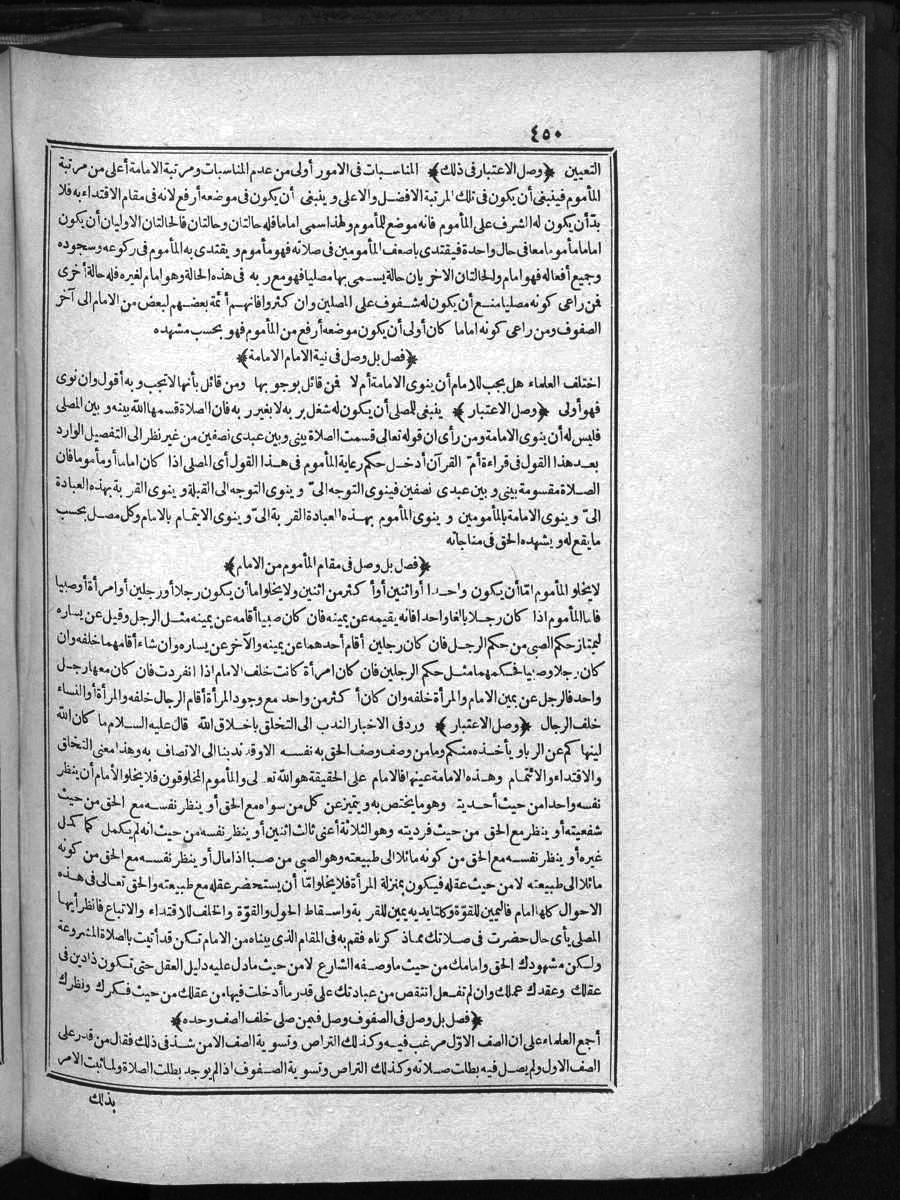 ٤٥٠
التعيين ﴿وصل الاعتبار فى ذلك﴾ المناسبات فى الامور أولى من عدم المناسبات ومرتبة الامامة أعلى من مرتبة
المأموم فينبغى أن يكون فى تلك المرتبة الافضل والاعلى وينبغى أن يكون فى موضعه أرفع لانه فى مقام الاقتداء به فلا
بدّ أن يكون له الشرف على المأموم فانه موضع للمأموم ولهذا سمى اماما فله حالتان وحالتان فالحالتان الاوليان أن يكون
اماما مأموما معا فى حال واحدة فيقتدى بأضعف المأمومين فى صلاته فهو مأموم ويقتدى به المأموم فى ركوعه وسجوده
وجميع أفعاله فهو امام والحالتان الاخريان حالة يسمى بها مصليا فهو مع ربه فى هذه الحالة وهو امام لغيره فله حالة أخرى
فمن راعى كونه مصليا منع أن يكون له شفوف على المصلين وان كثروا فانهم أئمة بعضهم لبعض من الامام الى آخر
الصفوف ومن راعى كونه اماما كان أولى أن يكون موضعه أرفع من المأموم فهو بحسب مشهده
﴿فصل بل وصل فى نية الامام الامامة﴾
اختلف العلماء هل يجب للامام أن ينوى الامامة أم لا فمن قائل بوجوبها ومن قائل بأنها لاتجب وبه أقول وان نوى
فهو أولى ﴿وصل الاعتبار﴾ ينبغى للمصلى أن يكون له شغل بربه لا بغير ربه فان الصلاة قسمها الله بينه وبين المصلى
فليس له أن ينوى الامامة ومن رأى ان قوله تعالى قسمت الصلاة بينى وبين عبدى نصفين من غير نظر الى التفصيل الوارد
بعد هذا القول فى قراءة أمّ القرآن أدخل حكم رعاية المأموم فى هذا القول أى المصلى اذا كان اماما أو مأموما فان
الصلاة مقسومة بينى وبين عبدى نصفين فينوى التوجه الىّ وينوى التوجه الى القبلة وينوى القربة بهذه العبادة
الىّ وينوى الامامة بالمأمومين وينوى المأموم بهذه العبادة القربة الىّ وينوى الايتمام بالامام وكل مصل بحسب
مايقع له ويشهده الحق فى مناجاته
﴿فصل بل وصل فى مقام المأموم من الامام﴾
لايخلو المأموم امّا أن يكون واحدا أو اثنين أو أكثر من اثنين ولا يخلو اما أن يكون رجلا أو رجلين أو امرأة أو صبيا
فاما المأموم اذا كان رجلا بالغا واحدا فانه يقيمه عن يمينه فان كان صبيا أقامه عن يمينه مثل الرجل وقيل عن يساره
ليمتاز حكم الصبى من حكم الرجل فان كان رجلين أقام أحدهما عن يمينه والآخر عن يساره وان شاء أقامهما خلفه وان
كان رجلا وصبيا فحكمهما مثل حكم الرجلين فان كان امرأة كانت خلف الامام اذا انفردت فان كان معها رجل
واحد فالرجل عن يمين الامام والمرأة خلفه وان كان أكثر من واحد مع وجود المرأة أقام الرجال خلفه والمرأة أو النساء
خلف الرجال ﴿وصل الاعتبار﴾ ورد فى الاخبار الندب الى التخلق باخلاق الله قال عليه السلام ما كان الله
لينهاكم عن الربا ويأخذه منكم وما من وصف وصف الحق به نفسه الا وقد ندبنا الى الاتصاف به وهذا معنى التخلق
والاقتداء والائتمام وهذه الامامة عينها فالامام على الحقيقة هو الله تعالى والمأموم المخلوقون فلا يخلو الامام أن ينظر
نفسه واحدا من حيث أحديته وهو ما يختص به ويتميز عن كل من سواه مع الحق أو ينظر نفسه مع الحق من حيث
شفعيته أو ينظر مع الحق من حيث فرديته وهو الثلاثة أعنى ثالث اثنين أو ينظر نفسه من حيث انه لم يكمل كما كمل
غيره أو ينظر نفسه مع الحق من كونه مائلا الى طبيعته وهو الصبى من صبا اذا مال أو ينظر نفسه مع الحق من كونه
مائلا الى طبيعته لا من حيث عقله فيكون بمنزلة المرأة فلا يخلو امّا أن يستحضر عقله مع طبيعته والحق تعالى فى هذه
الاحوال كلها امام فاليمين للقوّة وكلتا يديه يمين للقربة واسقاط الحول والقوّة والخلف للاقتداء والاتباع فانظر أيها
المصلى بأى حال حضرت فى صلاتك مما ذكرناه فقم به فى المقام الذى بيناه من الامام تكن قد أتيت بالصلاة المشروعة
وليكن مشهودك الحق وامامك من حيث ما وصفه الشارع لا من حيث ما دل عليه دليل العقل حتى تكون ذا دين فى
عقلك وعقدك عملك وان لم تفعل انتقص من عبادتك على قدر ما أدخلت فيها من عقلك من حيث فكرك ونظرك
﴿فصل بل وصل فى الصفوف وصل فيمن صلى خلف الصف وحده﴾
أجمع العلماء على ان الصف الاوّل مرغب فيه وكذلك التراص وتسوية الصف الا من شذ فى ذلك فقال من قدر على
الصف الاول ولم يصل فيه بطلت صلاته وكذلك التراص وتسوية الصفوف اذا لم يوجد بطلت الصلاة ولما ثبت الامر
بذلك